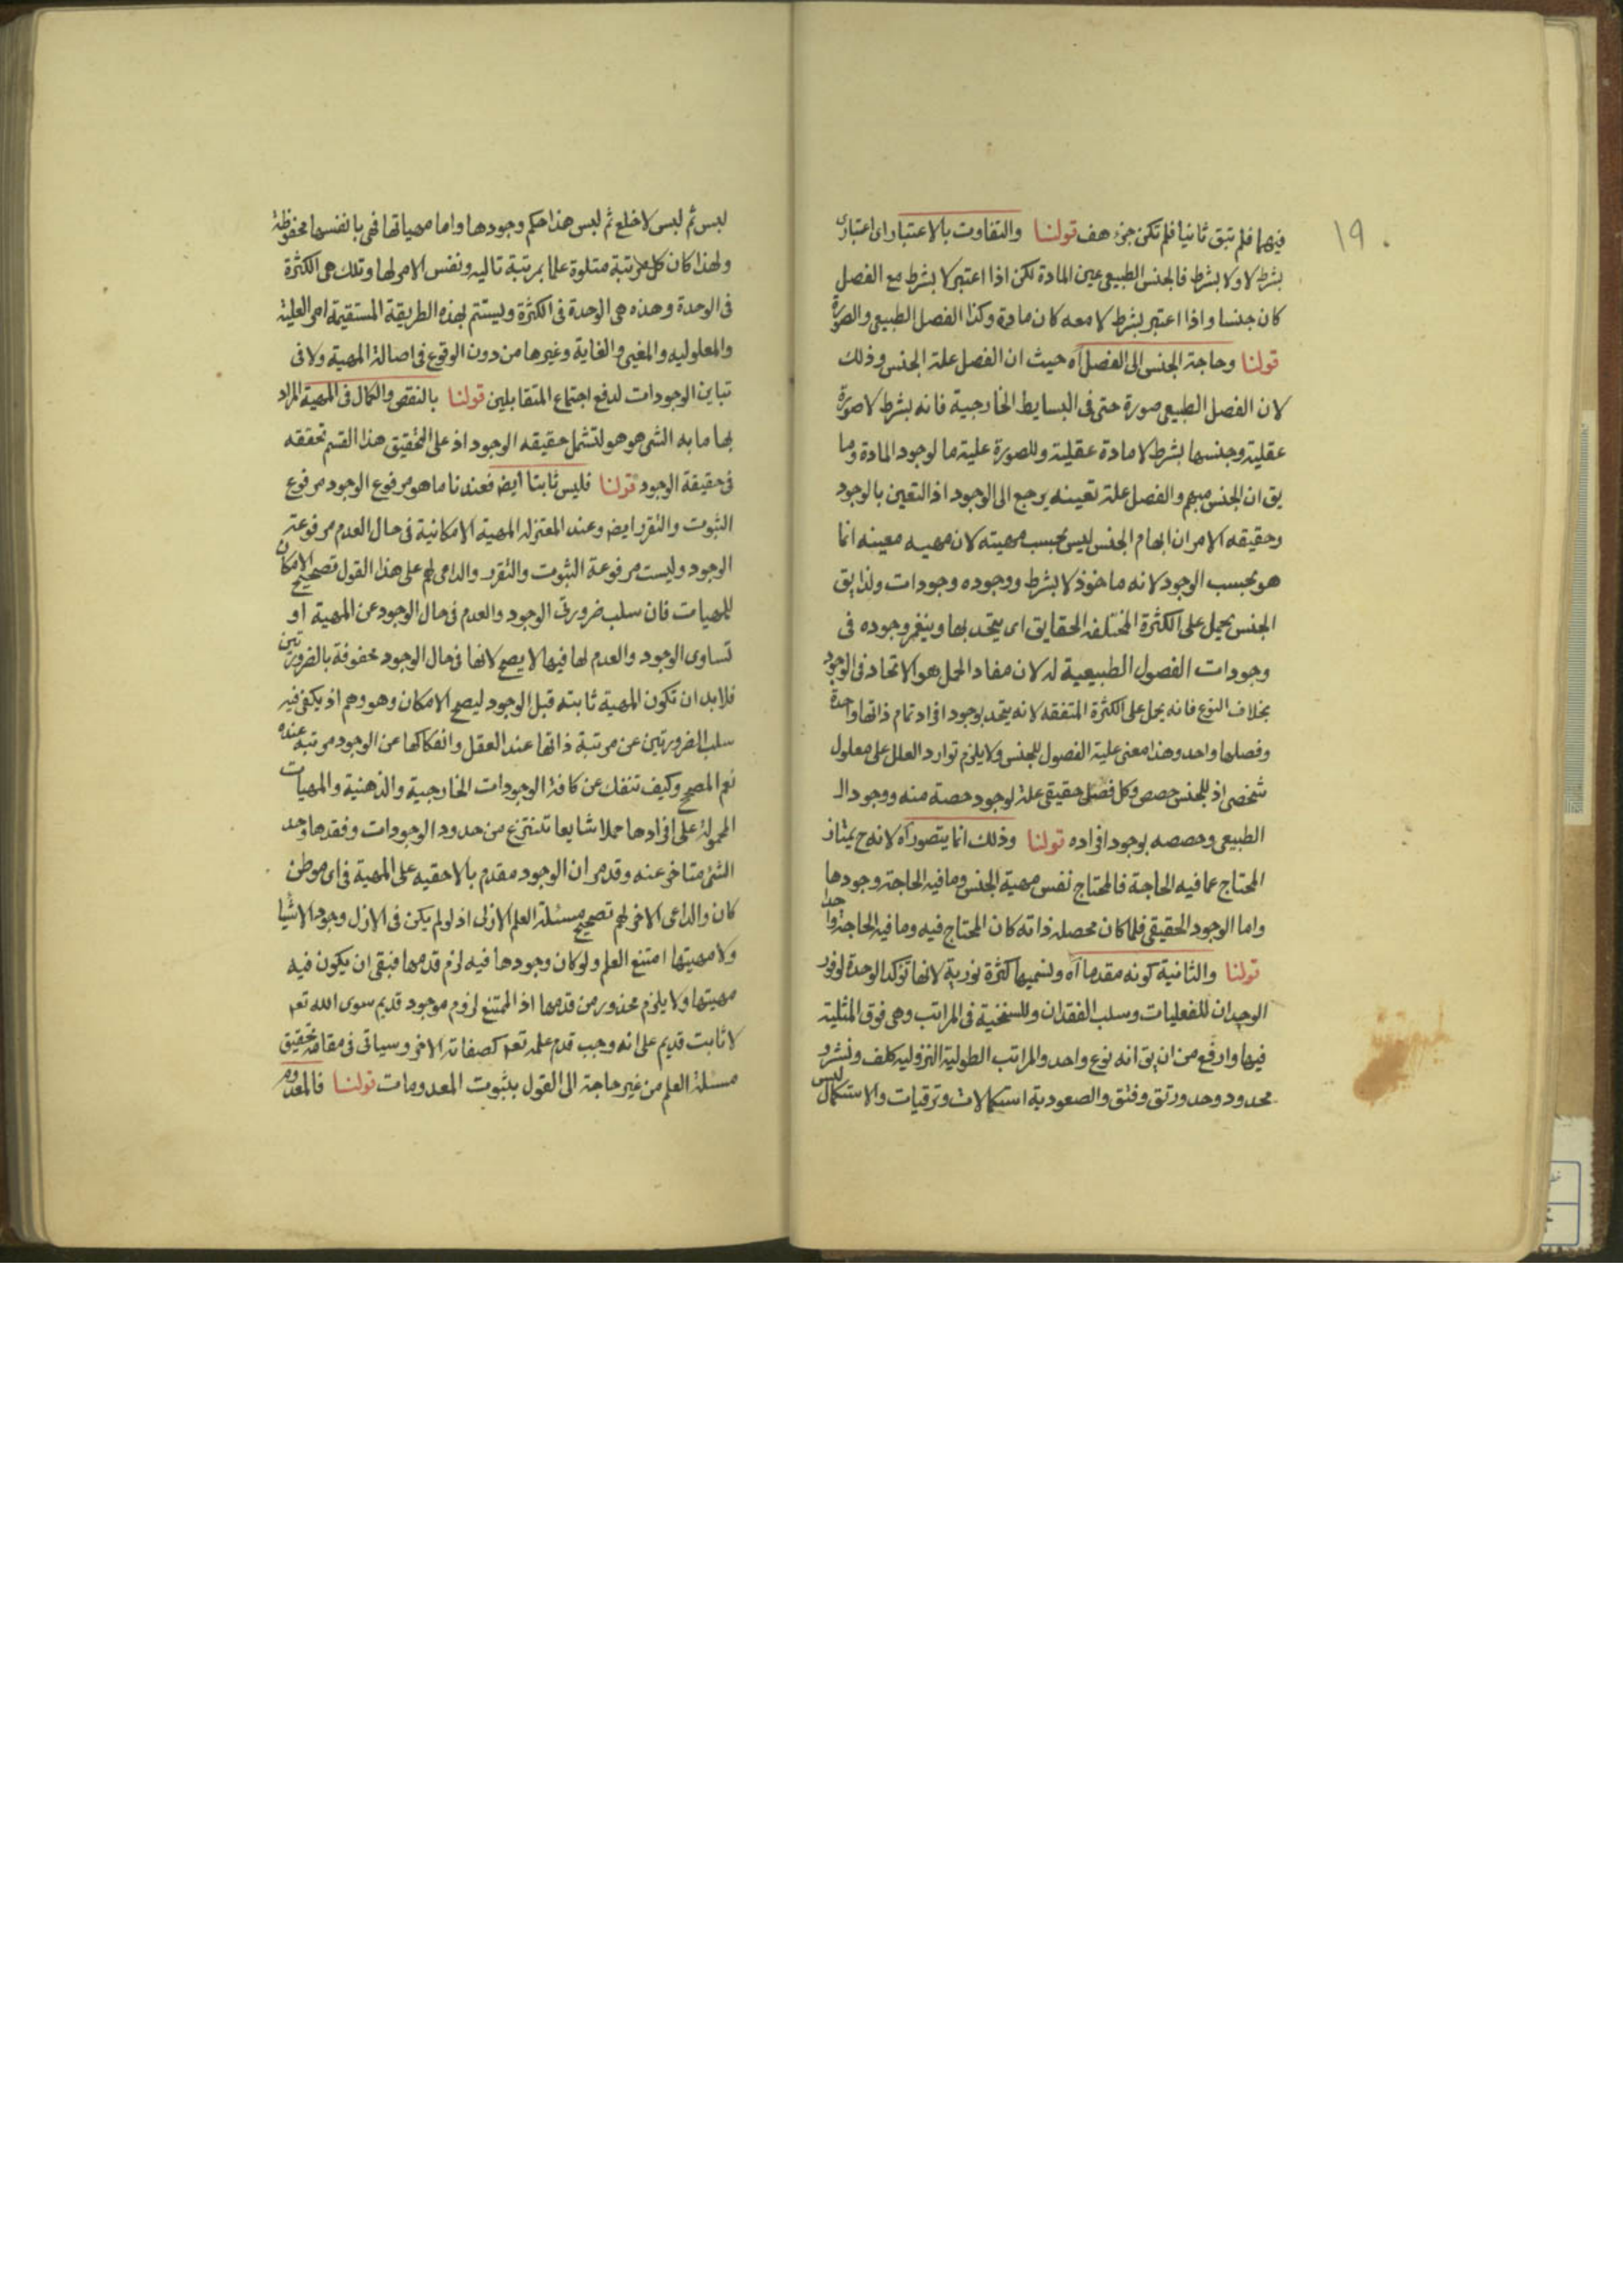 ١٩
فيهما فلم تبق ثانيا فلم تكن جزء هف قولنا والتفاوت بالاعتبار اى اعتبارى
بشرط لا ولا بشرط فالجنس الطبيعى عين المادة لكن اذا اعتبر لا بشرط مع الفصل
كان جنسا واذا اعتبر بشرط لا معه كان مادة وكذا الفصل الطبيعى والصورة
قولنا وحاجة الجنس الى الفصل اه حيث ان الفصل علة الجنس وذلك
لان الفصل الطبيعى صورة حتى فى البسايط الخارجية فانه بشرط لا صورة
عقلية وجنسها بشرط لا مادة عقلية وللصورة علية ما لوجود المادة وما
يق ان الجنس مبهم والفصل علة تعينه يرجع الى الوجود اذ التعين بالوجود
وحقيقه الامر ان ابهام الجنس ليس بحسب مهيته لان مهيه معينه انما
هو بحسب الوجود لانه ماخوذ لا بشرط ووجوده وجودات ولذا يق
الجنس يحمل على الكثرة المختلفة الحقايق اى يتحد بها وينغمر وجوده فى
وجودات الفصول الطبيعية له لان مفاد الحمل هو الاتحاد فى الوجود
بخلاف النوع فانه يحمل على الكثرة المتفقه لانه يتحد بوجود افراد تمام ذاتها واحدة
وفصلها واحد وهذا معنى علية الفصول للجنس ولا يلزم توارد العلل على معلول
شخصى اذ للجنس حصص وكل فصل حقيقى علة لوجود حصة منه ووجود ال
الطبيعى وحصصه بوجود افراده قولنا وذلك انما يتصور اه لانه ح يمتاز
المحتاج عما فيه الحاجة فالمحتاج نفس مهية الجنس وما فيه الحاجة وجودها
واما الوجود الحقيقى فلما كان محصله ذاته كان المحتاج فيه وما فيه الحاجة واحدا
قولنا والثانية كونه مقدما اه ونسميها كثرة نورية لانها تؤكد الوحدة لوفور
الوجدان للفعليات وسلب الفقدان وللسنخية فى المراتب وهى فوق المثلية
فيها وارفع من ان يق انه نوع واحد والمراتب الطولية النزوليه كلف ونشر و
محدود وحد ورتق وفتق والصعودية استكمالات وترقيات والاستكمال ليس
لبس ثم لبس لا خلع ثم لبس هذا حكم وجودها واما مهياتها فهى بانفسها محفوظة
ولهذا كان كل مرتبة متلوة علما بمرتبة تاليه ونفس الامر لها وتلك هى الكثرة
فى الوحدة وهذه هى الوحدة فى الكثرة ويستتم بهذه الطريقة المستقيمة امر العلية
والمعلوليه والمغيى والغاية وغيرها من دون الوقوع فى اصالة المهية ولا فى
تباين الوجودات لدفع اجتماع المتقابلين قولنا بالنقص والكمال فى المهية المراد
بها ما به الشى هو هو لتشمل حقيقه الوجود اذ على التحقيق هذا القسم تحققه
فى حقيقة الوجود قولنا فليس ثابتا ايض فعندنا ما هو مرفوع الوجود مرفوع
الثبوت والتقرر ايض وعند المعتزله المهية الامكانية فى حال العدم مرفوعة
الوجود وليست مرفوعة الثبوت والتقرر والداعى لهم على هذا القول تصحيح الامكان
للمهيات فان سلب ضرورتى الوجود والعدم فى حال الوجود عن المهية او
تساوى الوجود والعدم لها فيها لا يصح لانها فى حال الوجود محفوفة بالضرورتين
فلابد ان تكون المهية ثابته قبل الوجود ليصح الامكان وهو وهم اذ يكفى فيه
سلب الضرورتين عن مرتبة ذاتها عند العقل وانفكاكها عن الوجود مرتبة عنده
نعم المصحح وكيف تنفك عن كافة الوجودات الخارجية والذهنية والمهيات
المحمولة على افرادها حملا شايعا تنتزع من حدود الوجودات وفقدها وحد
الشئ متاخر عنه وقد مر ان الوجود مقدم بالاحقيه على المهية فى اى موطن
كان والداعى الاخر لهم تصحيح مسئلة العلم الازلى اذ لو لم يكن فى الازل وجود الاشيا
ولا مهيتها امتنع العلم ولو كان وجودها فيه لزم قدمها فبقى ان يكون فيه
مهيتها ولا يلزم محذور من قدمها اذ الممتنع لزوم موجود قديم سوى الله تعه
لا ثابت قديم على انه وجب قدم علمه تعه كصفاته الاخر وسياتى فى مقامه تحقيق
مسئلة العلم من غير حاجة الى القول بثبوت المعدومات قولنا فالمعدوم